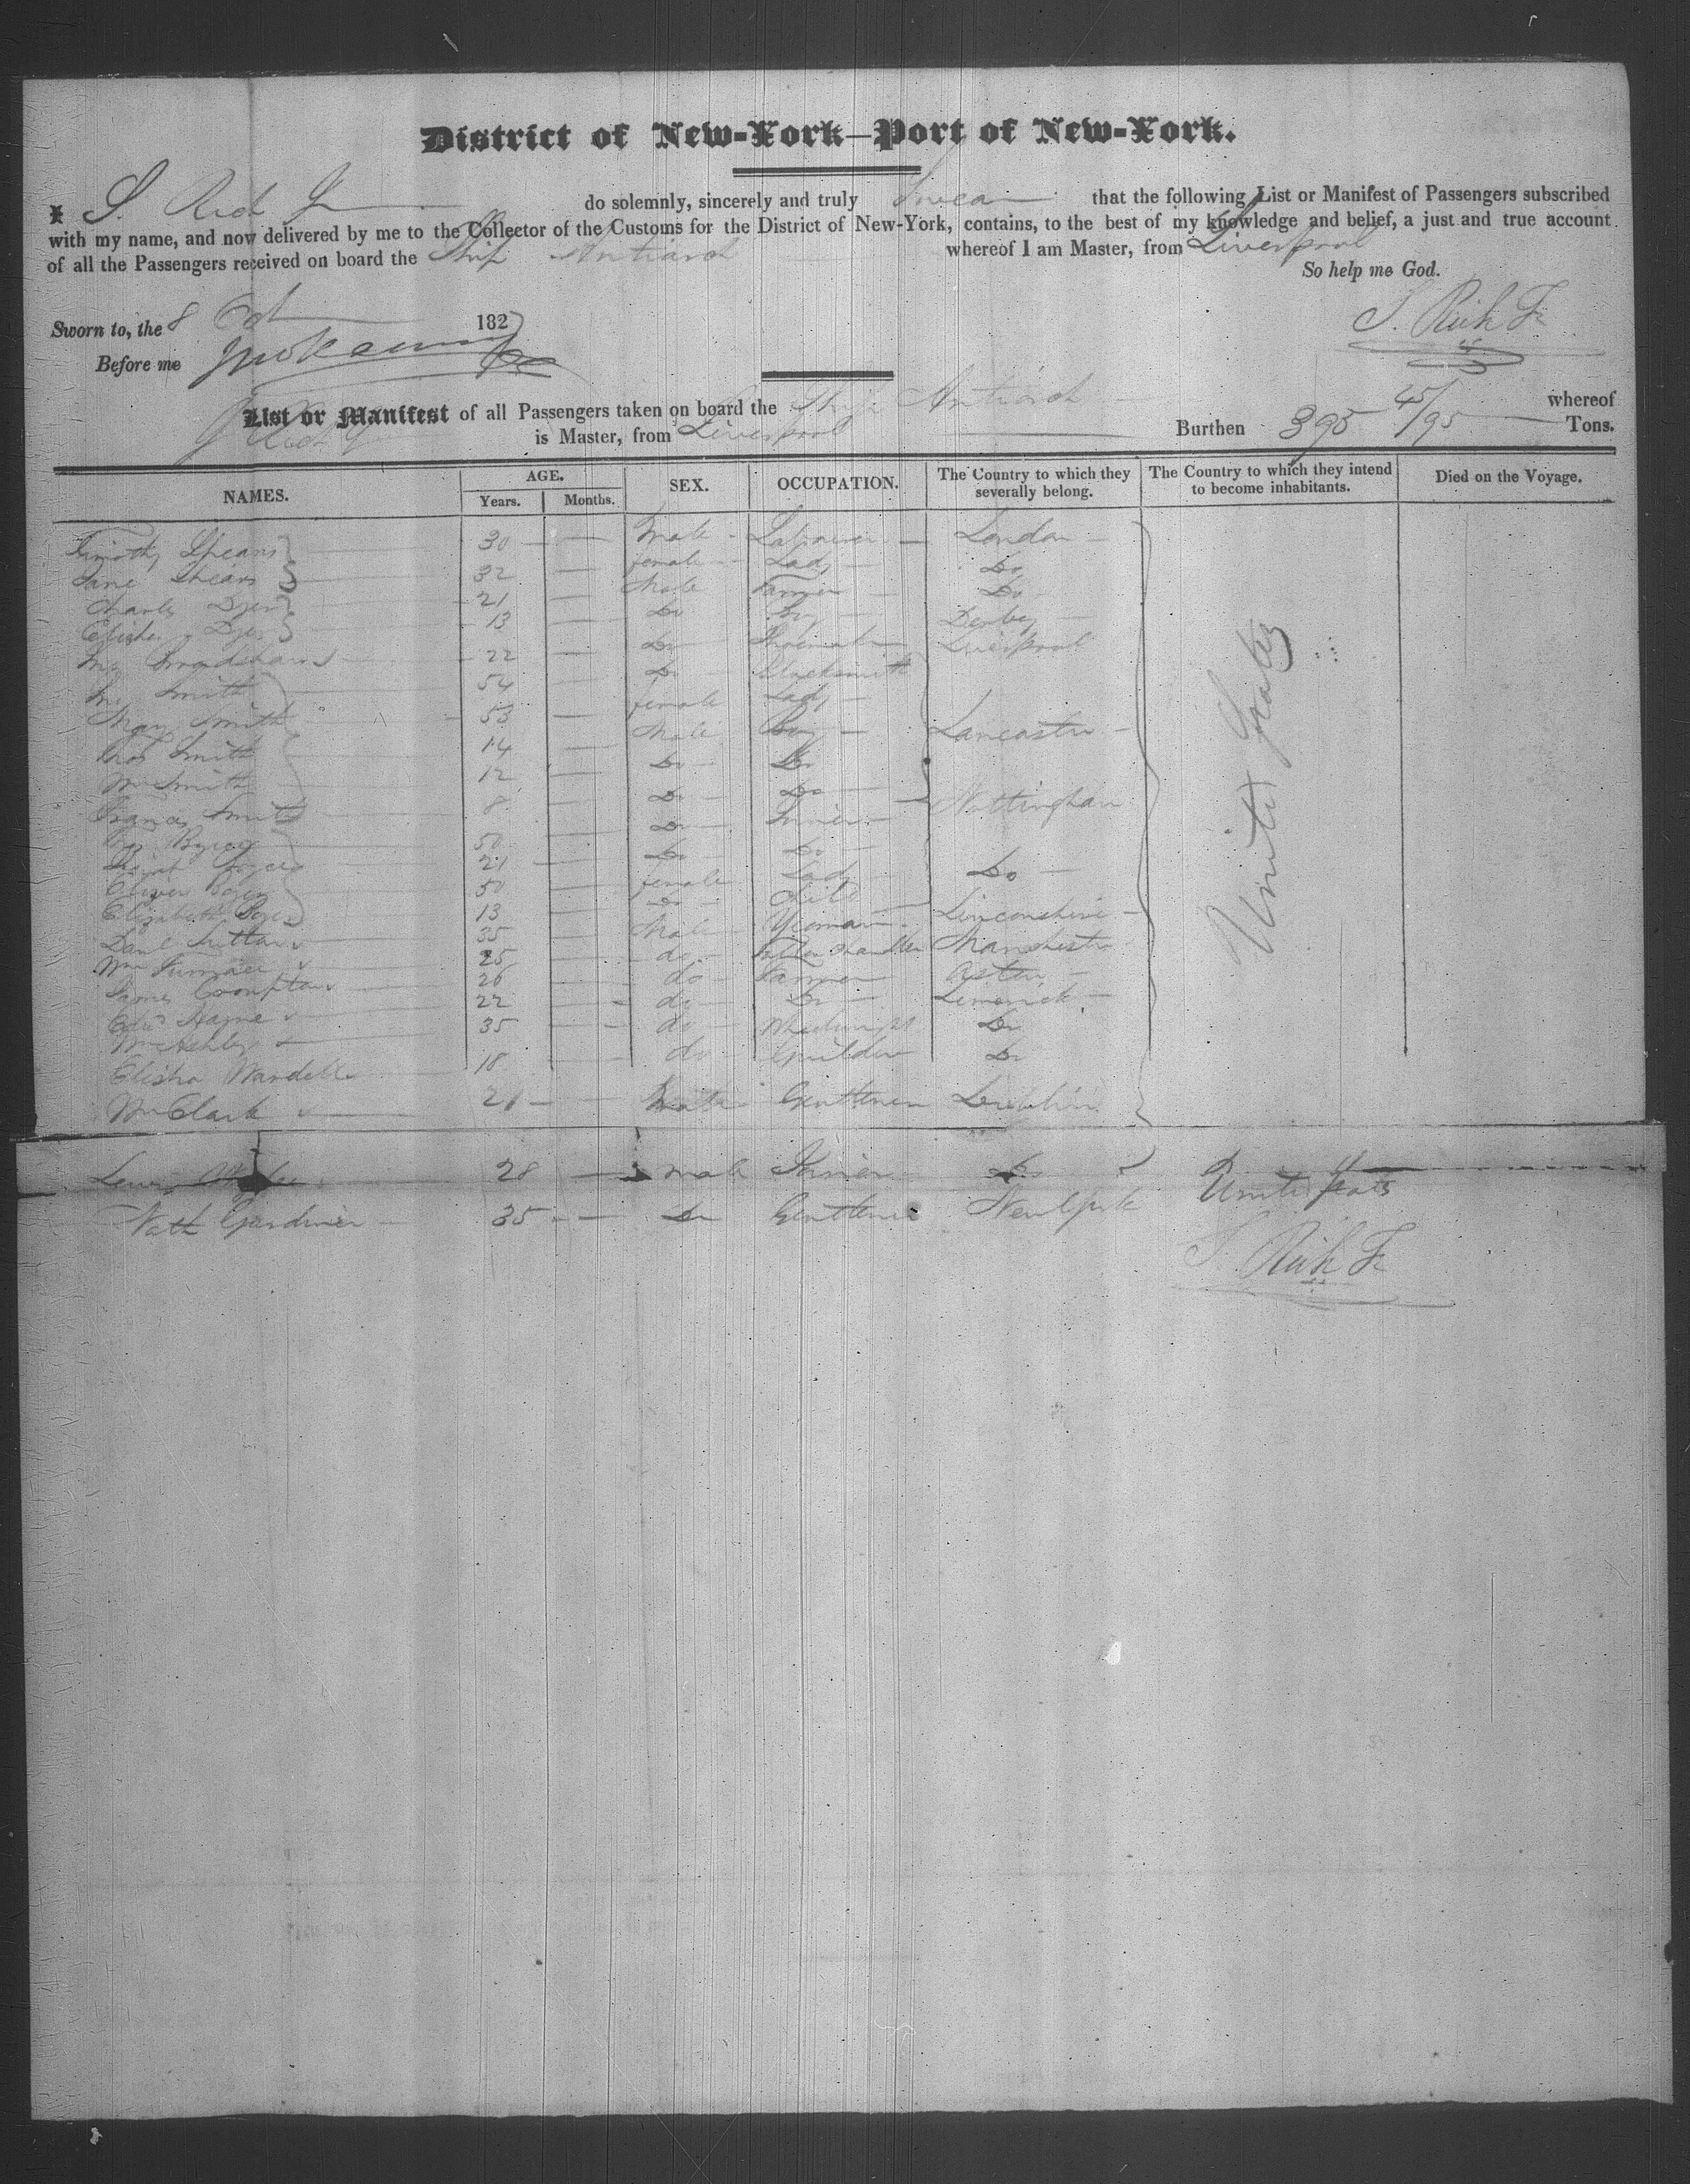 District of New-York—Port of New-York.
I S. Rich Jr do solemnly, sincerely and truly Swear that the following List or Manifest of Passengers subscribed
with my name, and now delivered by me to the Collector of the Customs for the District of New-York, contains, to the best of my knowledge and belief, a just and true account
of all the Passengers received on board the Ship Antioch whereof I am Master, from Liverpool
So help me God.
Sworn to, the 8 Oct 1827
S. Rich Jr
Before me
List or Manifest of all Passengers taken on board the Ship Antioch whereof
S Rich Jr is Master, from Liverpool Burthen 395 45/95 Tons.
NAMES. AGE. Years. Months. SEX. OCCUPATION. The Country to which they severally belong. The Country to which they intend to become inhabitants. Died on the Voyage.
Timothy Shears 30 Male Labourer London
Jane Shears 32 female Lady Do
Charles Dyer 21 Male Farmer Do
Elisha Dyer 13 Do Boy Derby
Wm 22 Do Shoemaker Liverpool
Wm Smith 54 Do Blacksmith
Mary Smith 53 female Lady
Thos Smith 14 Male Boy Lancaster
Wm Smith 12 Do Do
Francis Smith 8 Do Do
Thos 50 Do Nottingham
21 Do Do
50 female Lady Do
Elizabeth 13 Do Child
Danl Sutton 35 Male Yeoman Linconshire
Wm Furnace 25 do Tallow Chandler Manchester
James Compton 26 do Farmer
Edwd Hayne 22 do Do Limerick
Wm Ashley 35 do Wheelwright Do
Elisha Wardell 18 do Do
Wm Clark 21 Male Gentlemen Dublin
United States
Lewis 28 male Do United States
Nath Gardiner 35 Do Gentleme New York
S. Rich Jr